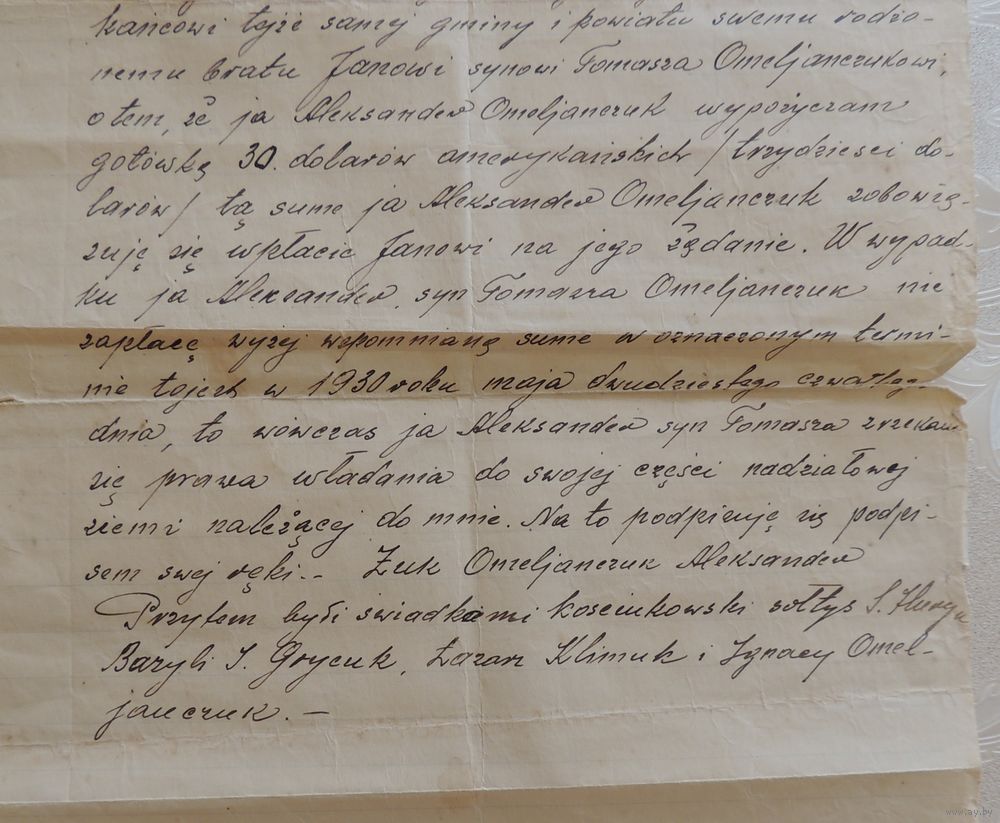 kańcowi tejże samej gminy i powiatu swemu rodzo-
nemu bratu Janowi synowi Tomasza Omeljanczukowi,
o tem, że ja Aleksander Omeljanczuk wypożyczam
gotówką 30. dolarów amerykańskich / trzydziesci do-
larów / tą sume ja Aleksander Omeljanczuk zobowią-
zuję się wpłacic Janowi na jego żądanie. W wypad-
ku ja Aleksander syn Tomasza Omeljanczuk nie
zapłacę wyżej wspomnianą sume w oznaczonym termi-
nie tojest w 1930 roku maja dwudziestego czwartego
dnia, to wówczas ja Aleksander syn Tomasza zrzekam
się prawa władania do swojej części nadziałowej
ziemi należącej do mnie. Na to podpisuję się podpi-
sem swej ręki.. Żuk Omeljanczuk Aleksander
Przytem byli świadkami kosciukowski sołtys S.
Bazyli S. Grycuk, Łazarz Klimuk i Ignacy Omel-
janczuk. —
www.ay.by